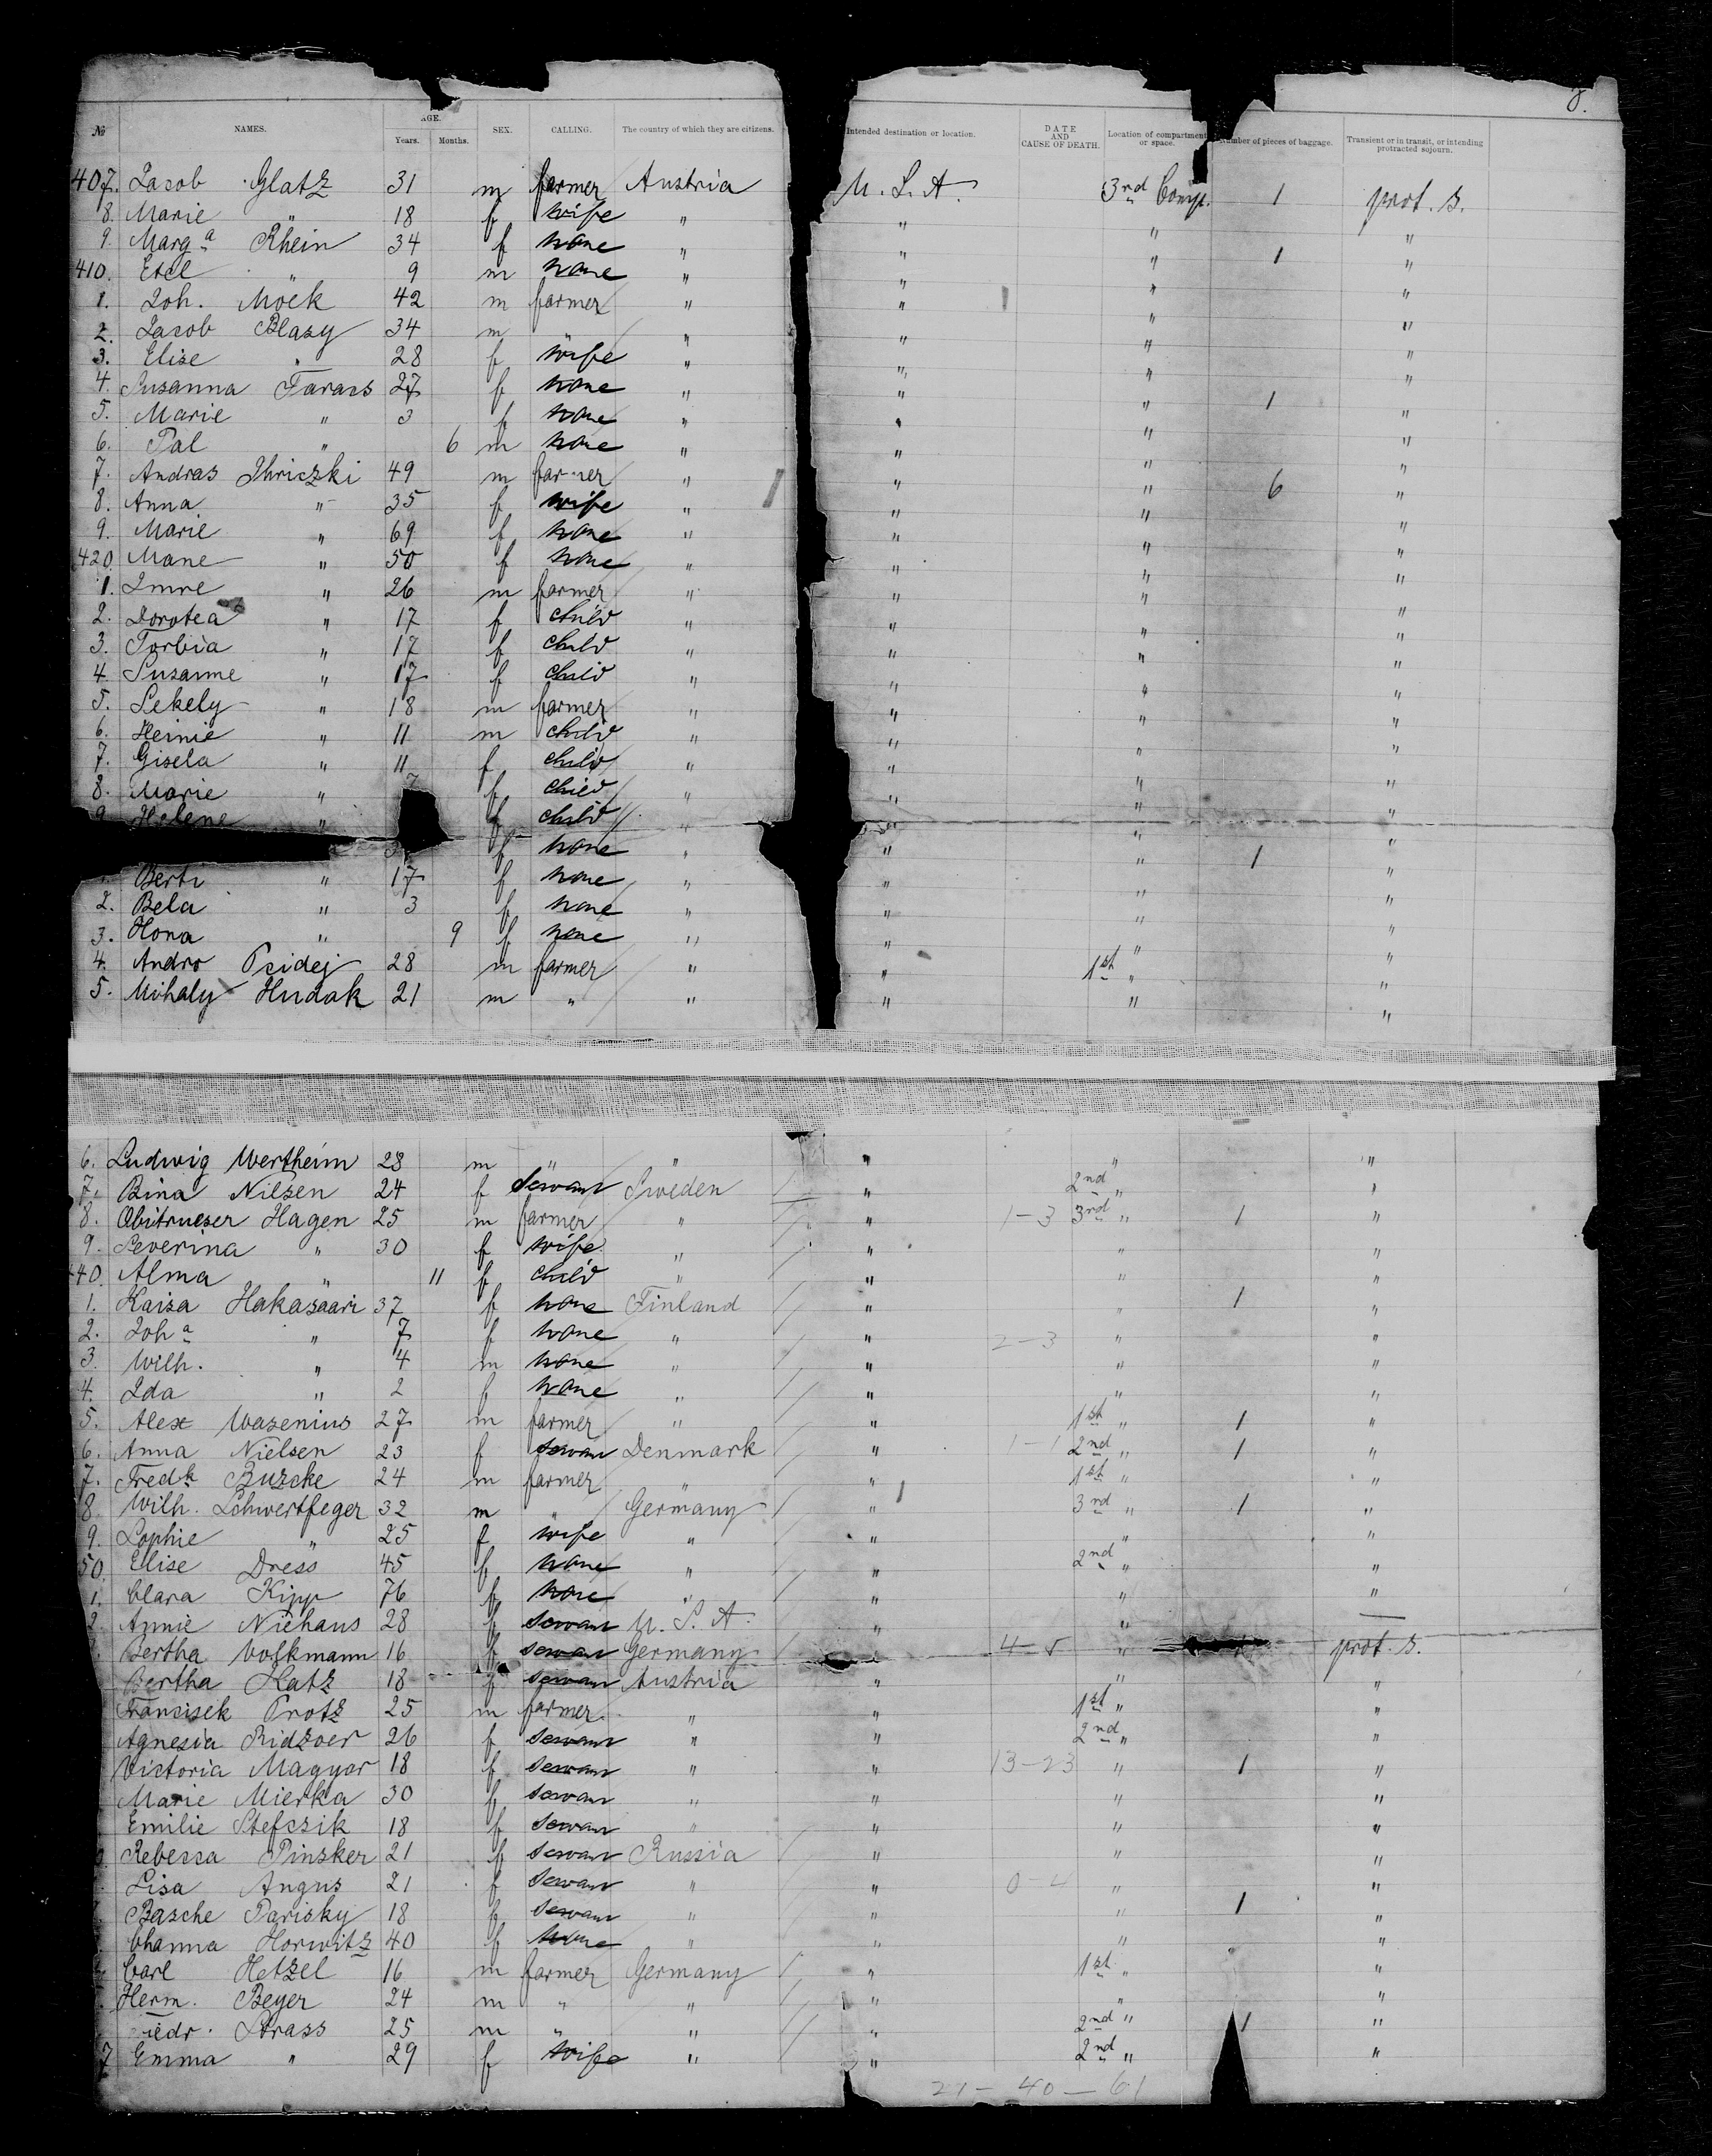 8.
№ NAMES. AGE. Years. Months. SEX. CALLING. The country of which they are citizens. Intended destination or location. DATE AND CAUSE OF DEATH. Location of compartment or space. Number of pieces of baggage. Transient or in transit, or intending protracted sojourn.
407. Jacob Glatz 31 m farmer Austria U. S. A. 3rd Comp. 1 prot. s.
8. Marie " 18 f wife " " " "
9. Marga Rhein 34 f none " " " 1 "
410. Etel " 9 m none " " " "
1. Joh. Mock 42 m farmer " " " "
2. Jacob Blasy 34 m " " " " "
3. Elise " 28 f wife " " " "
4. Susanna Taracs 27 f none " " " 1 "
5. Marie " 3 f none " " " "
6. Pal " 6 m none " " " "
7. Andras Ihriczki 49 m farmer " " " 6 "
8. Anna " 35 f wife " " " "
9. Marie " 69 f none " " " "
420. Marie " 50 f none " " " "
1. Imre " 26 m farmer " " " "
2. Dorotea " 17 f child " " " "
3. " 17 f child " " " "
4. Susanne " 17 f child " " " "
5. Sekely " 18 m farmer " " " "
6. Heinie " 11 m child " " " "
7. Gisela " 11 f child " " " "
8. Marie " 7 f child " " " "
9. Helene " f child " " " "
f none " " " 1 "
Berti " 17 f none " " " "
2. Bela " 3 f none " " " "
3. Ilona " 9 f none " " " "
4. Andro Psidej 28 m farmer " " 1st " "
5. Mihaly Hudak 21 m " " " " "
6. Ludwig Wertheim 28 m " " " " "
7. Bina Nilsen 24 f servant Sweden " 2nd " "
8. Hagen 25 m farmer " " 1-3 3rd " 1 "
9. Severina " 30 f wife " " " "
440. Alma " 11 f child " " " "
1. Kaisa Hakasaari 37 f none Finland " " 1 "
2. Joha " 7 f none " " 2-3 " "
3. Wilh. " 4 m none " " " "
4. Ida " 2 f none " " " "
5. Alex Wasenius 27 m farmer " " 1st " 1 "
6. Anna Nielsen 23 f servant Denmark " 1-1 2nd " 1 "
7. Fredk Buzcke 24 m farmer " " 1st " "
8. Wilh. Schwertfeger 32 m " Germany " 3rd " 1 "
9. Sophie " 25 f wife " " " "
50. Elise Dress 45 f none " " 2nd " "
1. Clara Kipp 76 f none " " " "
2. Annie Niehaus 28 f servant U. S. A. " " —
Bertha Volkmann 16 f servant Germany " 4-5 " prot. s.
Bertha Katz 18 f servant Austria " " "
Francisek Protz 25 m farmer " " 1st " "
Agnesia Ridzoer 26 f servant " " 2nd " "
Victoria Magyar 18 f servant " " 13-23 " 1 "
Marie Mierka 30 f servant " " " "
Emilie Stefczik 18 f servant " " " "
Rebecca Pinsker 21 f servant Russia " " "
Lisa Angus 21 f servant " " 0-4 " "
Basche Parisky 18 f servant " " " 1 "
Channa Horwitz 40 f none " " " "
Carl Hetzel 16 m farmer Germany " 1st " "
Herm. Beyer 24 m " " " " "
iedr. Strass 25 m " " " 2nd " 1 "
7 Emma " 29 f wife " " 2nd " "
21 - 40 - 61